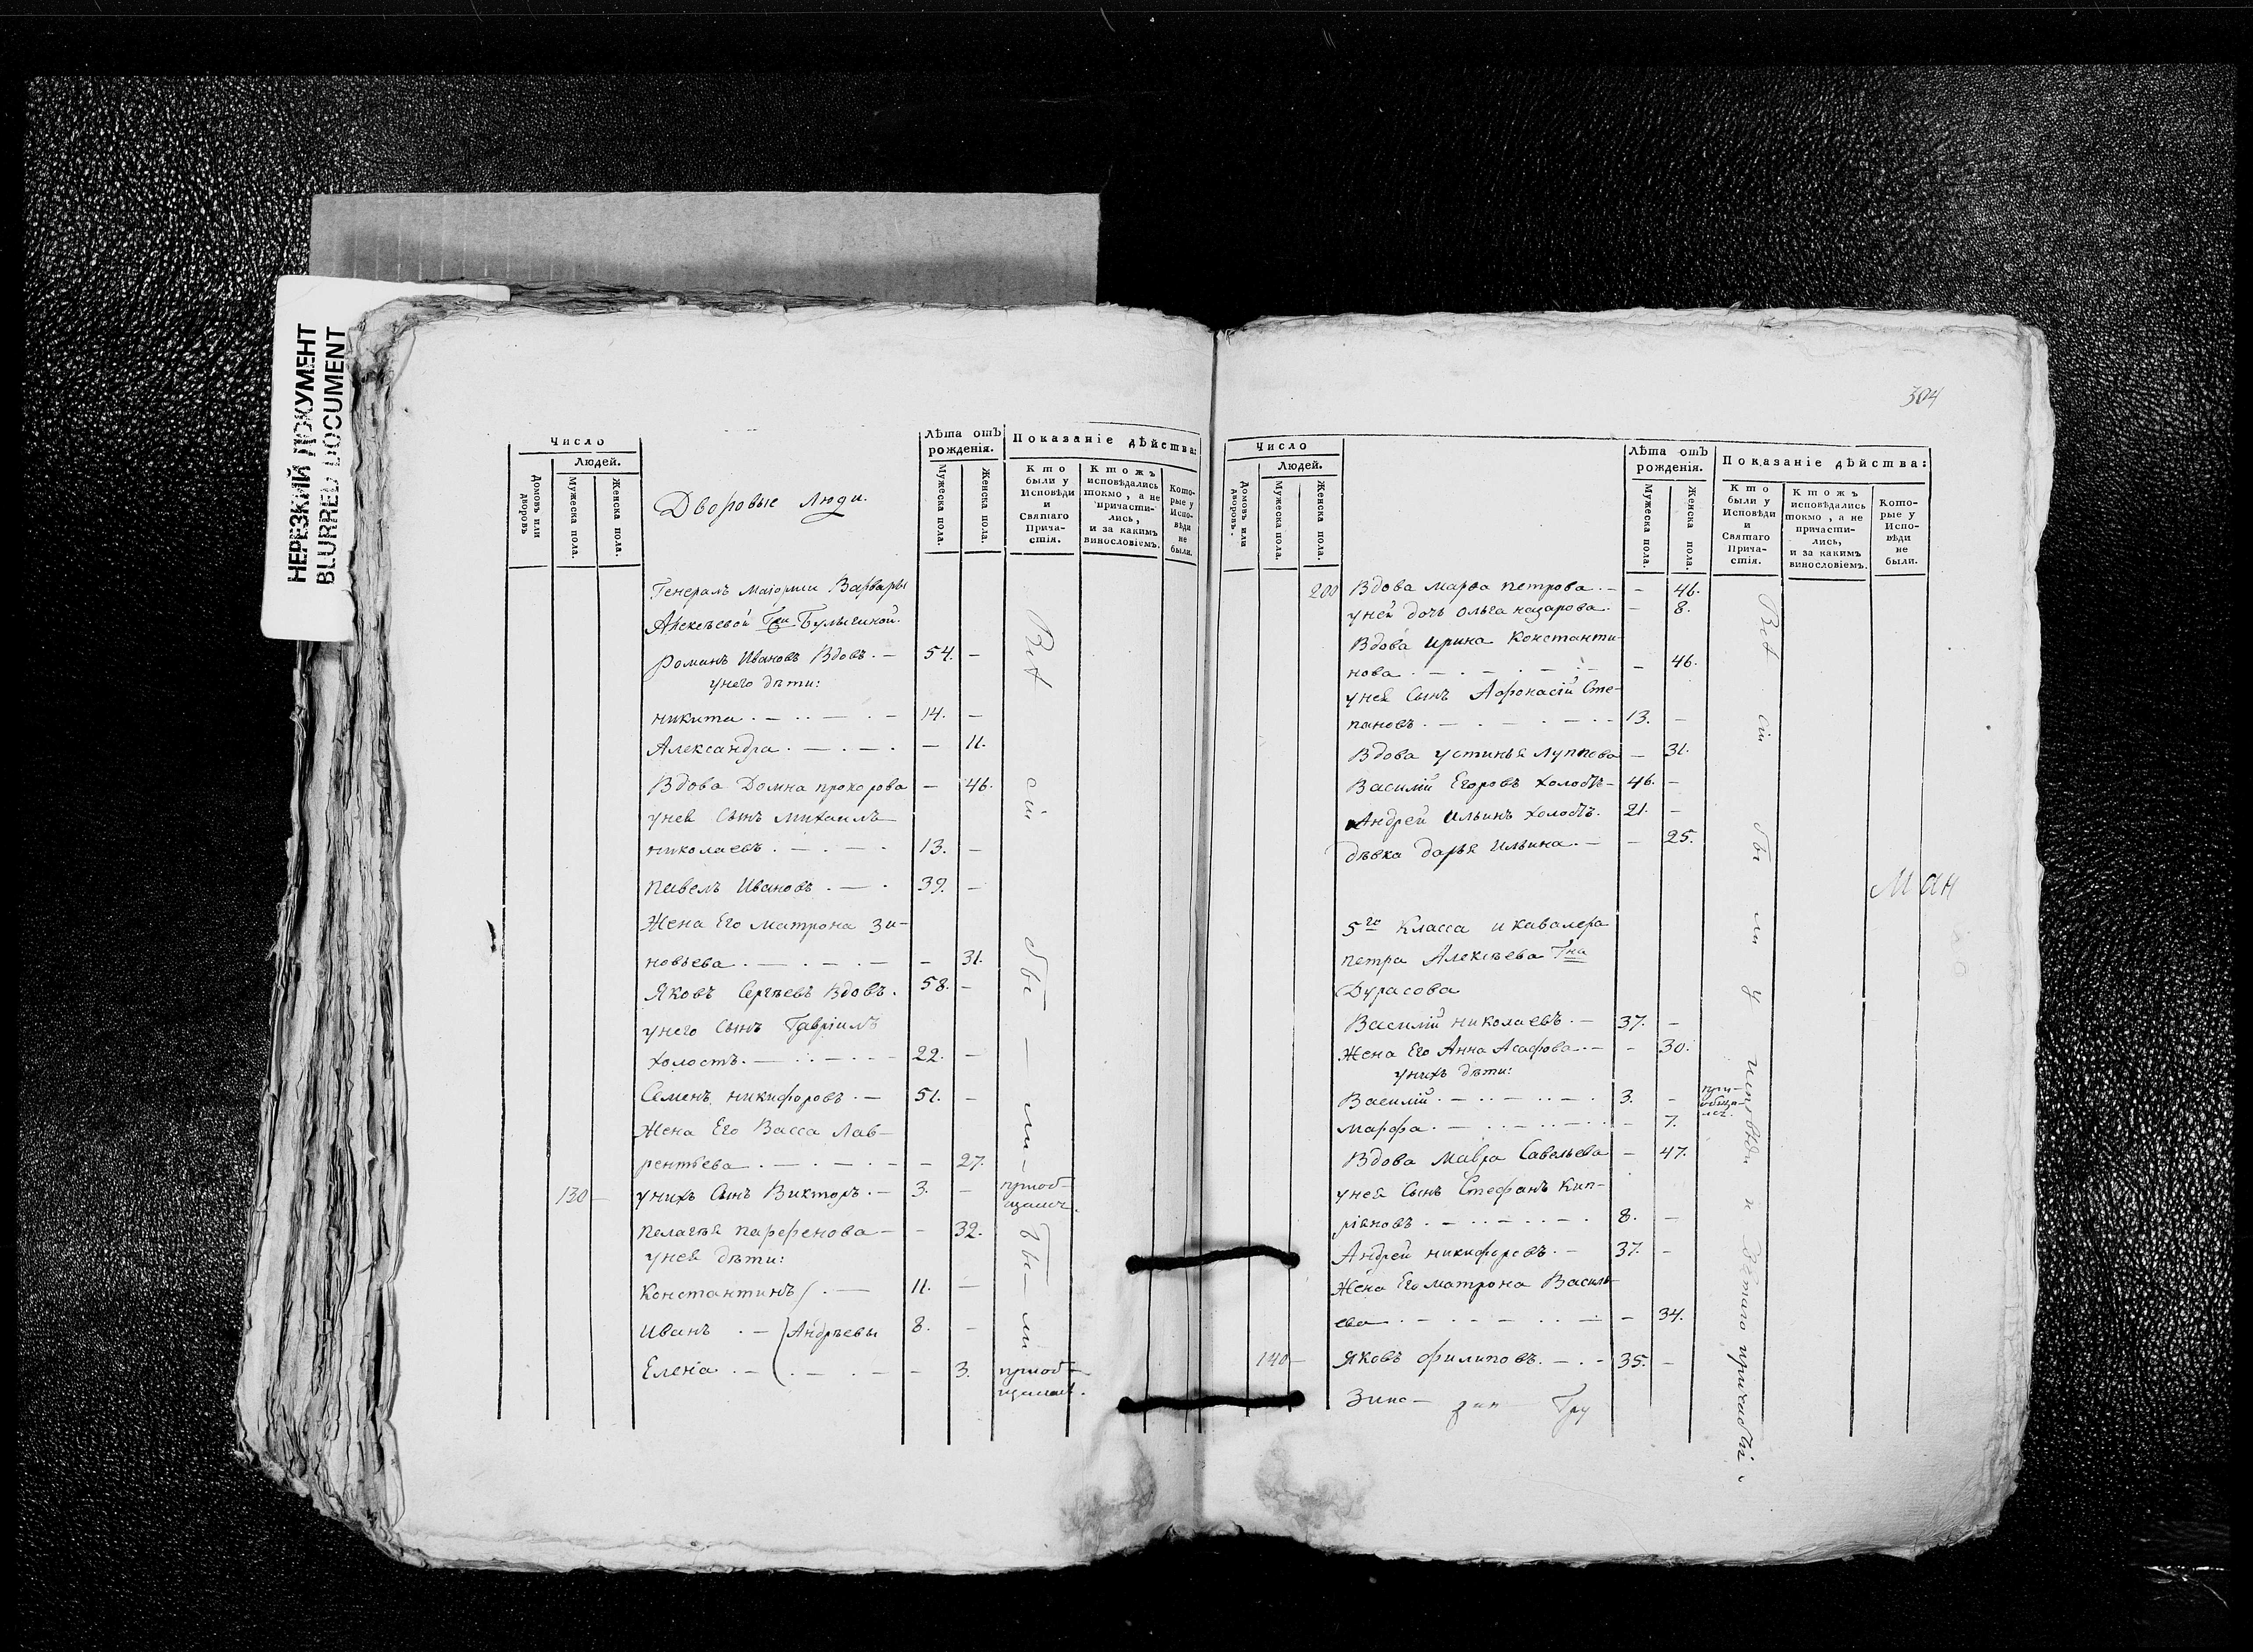 НЕРЕЗКИЙ ДОКУМЕНТ
BLURRED DOCUMENT
Число
Людей.
Домовъ или дворовъ
Мужеска пола.
Женска пола.
Дворовые люди.
Лѣта отъ рожденія.
Мужеска пола.
Женска пола.
Показаніе дѣйства:
Кто были у Исповѣди и Святаго Прича-стія.
Ктожъ исповѣдались токмо, а не причасти-лись, и за какимъ винословіемъ.
Кото-рые у Испо-вѣди не были.
Генералъ Маіорши Варвары
Алексѣевой Гжи Булыгиной.
Романъ Ивановъ Вдовъ. — 54. —
унего дѣти:
никита . — . . — . — 14. —
Александра . — . — . — 11.
Вдова Домна прохорова — 46.
унея Сынъ Михаилъ
николаевъ . — . — . 13. —
павелъ Ивановъ . — . 39. —
Жена Его Матрона Зи-
новьева . — . — . — — 31.
Яковъ Сергѣевъ Вдовъ . 58. —
унего Сынъ Гавріилъ
холостъ . — . . — . — 22. —
Семенъ никифоровъ . — 51. —
Жена Его Васса Лав-
рентьева . — . — . — — 27.
130 — унихъ Сынъ Викторъ . — 3. — приоб-
щался.
пелагѣя парфенова — — 32.
унея дѣти:
Константинъ . — 11. —
Иванъ . — Андрѣевы 8. —
Елена . — . — . — — 3. приоб-
щалась.
Всѣ сіи бы — ли — бы — ли
304
Число
Людей.
Домовъ или дворовъ.
Мужеска пола.
Женска пола.
Лѣта отъ рожденія.
Мужеска пола.
Женска пола.
Показаніе дѣйства:
Кто были у Исповѣди и Святаго Прича-стія.
Ктожъ исповѣдались токмо, а не причасти-лись, и за какимъ винословіемъ.
Кото-рые у Испо-вѣди не были.
200 Вдова марѳа петрова . — — 46.
уней дочь Ольга назарова . — 8.
Вдова ирина Константи-
нова . — . — . — . — — 46.
унея Сынъ Афонасій Сте-
пановъ . — . — . — . — 13. —
Вдова устинья Луппова — 31.
Василій Егоровъ холостъ — 46. —
Андрей Ильинъ холостъ . 21. —
дѣвка дарья Ильина . — — 25.
5го Класса и кавалера
петра Алексѣева Гна
Дурасова
Василій николаевъ . — 37. —
Жена Его Анна Асафова . — — 30.
унихъ дѣти:
Василій . — . . — . . — . 3. — при-
обща-
лся.
Марфа . — . . — . . — . — 7.
Вдова Мавра Савельева — 47.
унея Сынъ Стефанъ Кип-
ріяновъ . — . . — . — . 8. —
Андрей никифоровъ . — 37. —
Жена Его матрона Василь-
ева . — . — . — . . — — 34.
140 — Яковъ филиповъ . — . — 35. —
Всѣ сіи бы ли у исповѣди и Стаго причастія.
Ман